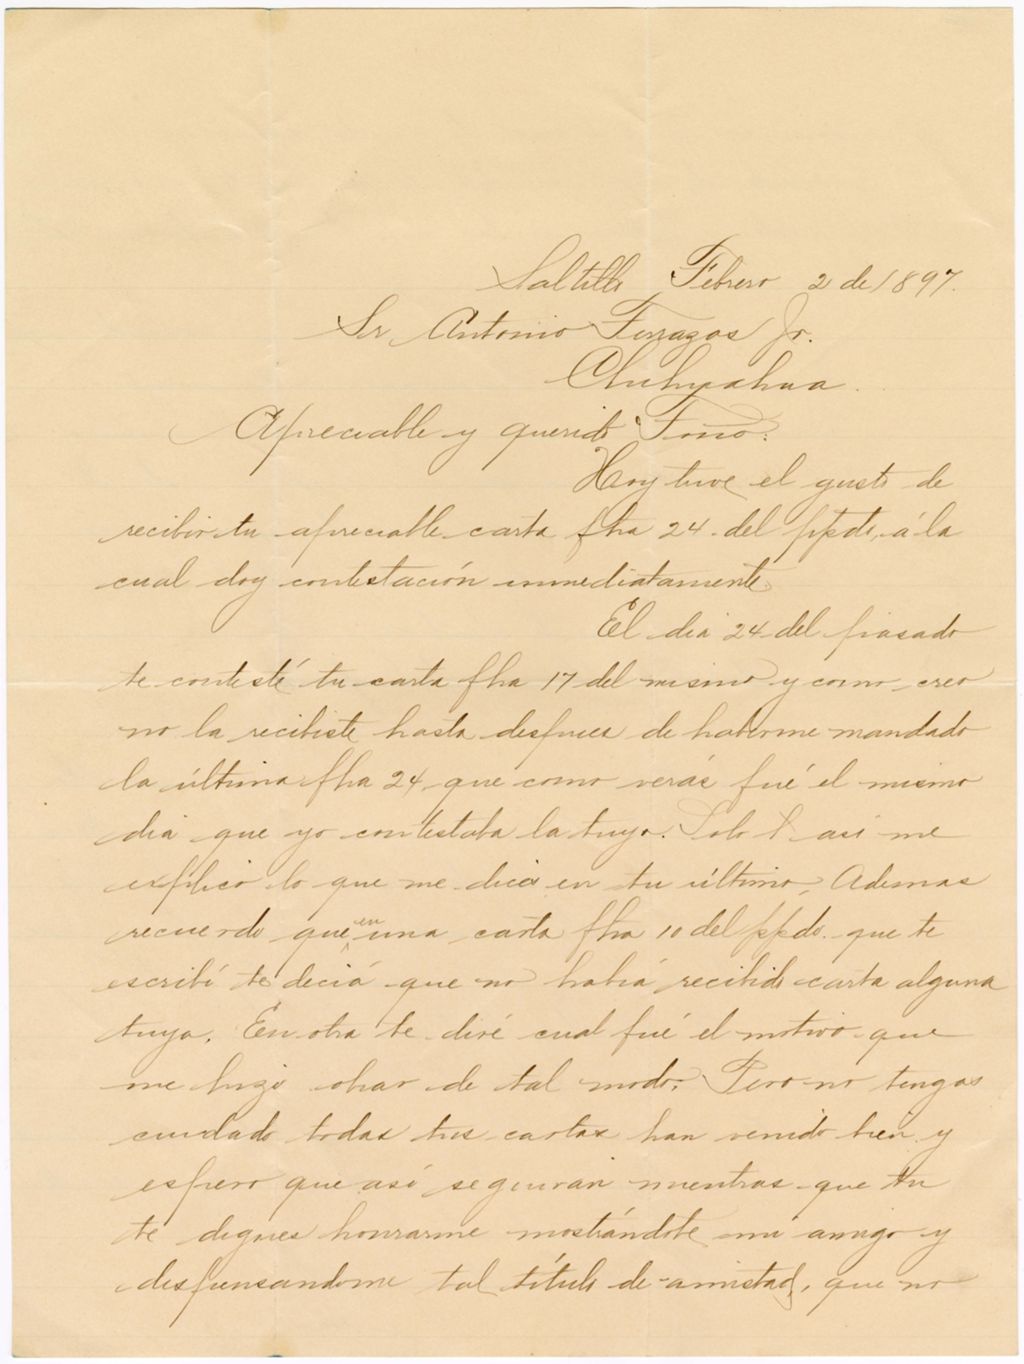 Saltillo Febrero 2 de 1897.
Sr Antonio Terrazas Jr.
Chihuahua.
Apreciable y querido Toño:
Hoy tuve el gusto de
recibir tu apreciable carta fha 24 del ppdo, á la
cual doy contestación inmediatamente.
El dia 24 del pasado
te contesté tu carta fha 17 del mismo y como creo
no la recibiste hasta despues de haberme mandado
la última fha 24, que como verás fué el mismo
dia que yo contestaba la tuya. Solo así me
explico lo que me dices en tu última. Ademas
recuerdo que en una carta fha 10 del ppdo. que te
escribí te deciá que no habiá recibido carta alguna
tuya. En otra te diré cual fué el motivo que
me hizo obrar de tal modo. Pero no tengas
cuidado todas tus cartas han venido bien y
espero que así seguiran mientras que tu
te dignes honrarme mostrándote mi amigo y
dispensandome tal título de amistad, que no